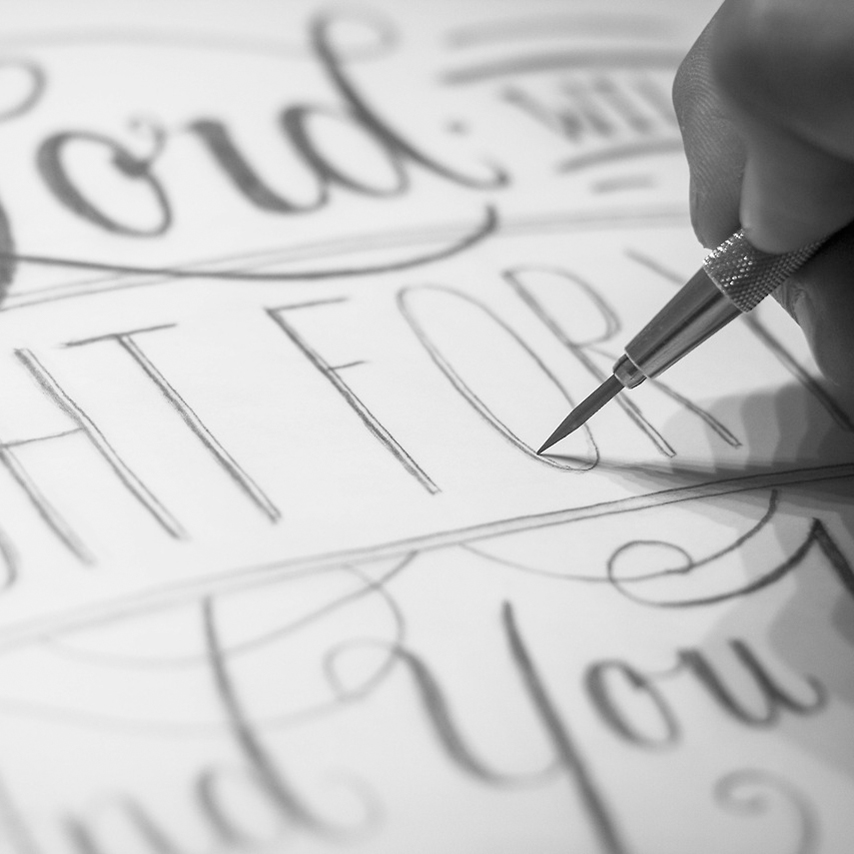 ord WIL
HT FOR Y
nd You